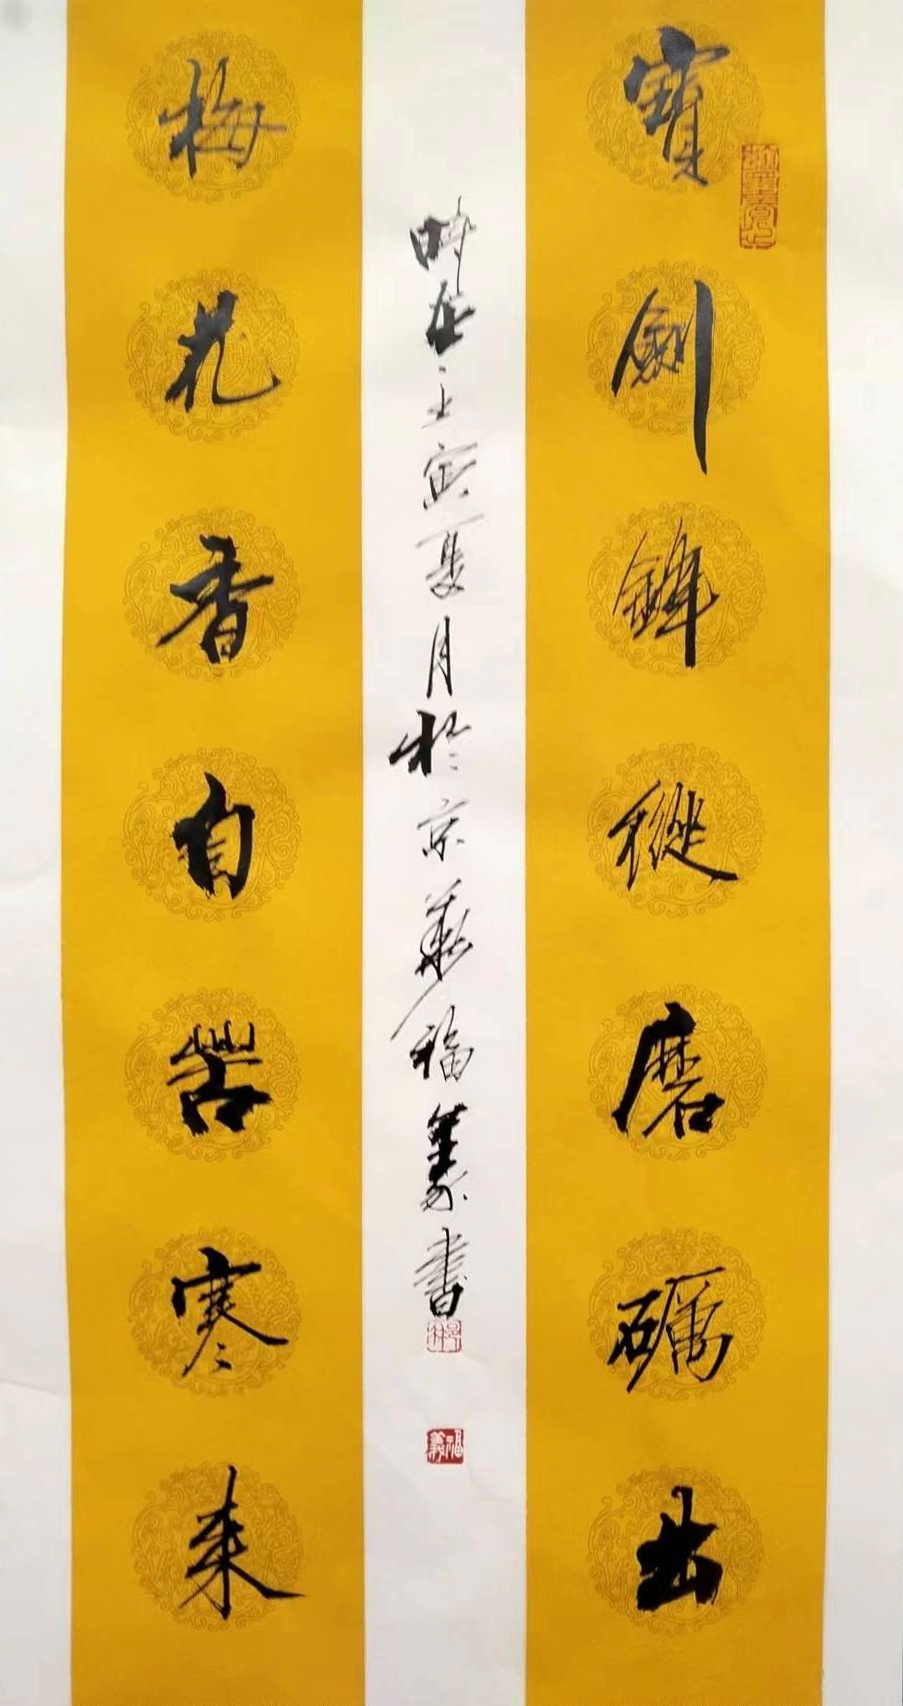 寶劍鋒從磨礪出
時在壬寅夏月於京華福義書
福義
梅花香自苦寒來